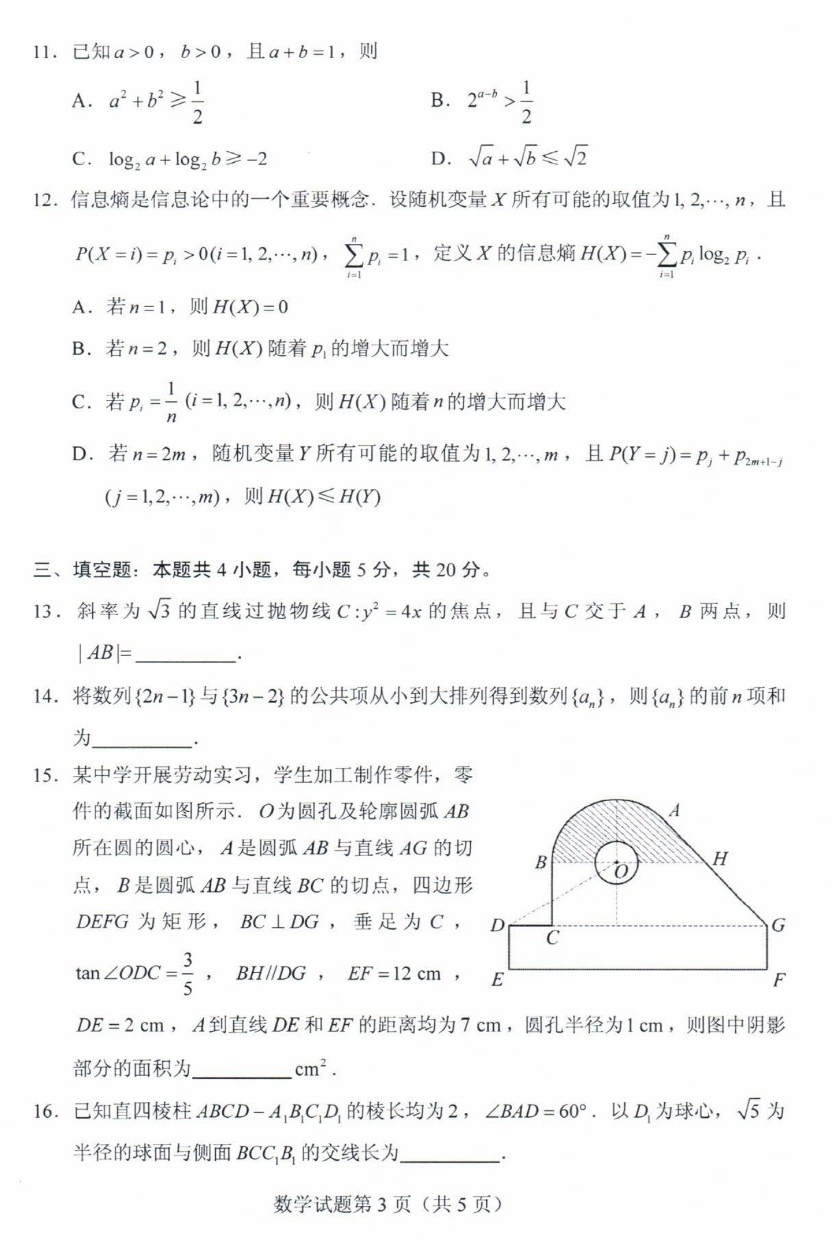 11．已知 a>0， b>0，且 a+b=1，则
A． a²+b²≥1/2 B． 2^{a-b}>1/2
C． log₂ a+log₂ b≥-2 D． √a+√b≤√2
12．信息熵是信息论中的一个重要概念．设随机变量 X 所有可能的取值为 1, 2,⋯, n，且
P(X=i)=p_i>0(i=1, 2,⋯, n)， ∑_{i=1}^{n} p_i=1，定义 X 的信息熵 H(X)=-∑_{i=1}^{n} p_i log₂ p_i．
A．若 n=1，则 H(X)=0
B．若 n=2，则 H(X) 随着 p₁ 的增大而增大
C．若 p_i=1/n (i=1, 2,⋯,n)，则 H(X) 随着 n 的增大而增大
D．若 n=2m，随机变量 Y 所有可能的取值为 1, 2,⋯, m，且 P(Y=j)=p_j+p_{2m+1-j}
(j=1,2,⋯,m)，则 H(X)≤H(Y)
三、填空题：本题共 4 小题，每小题 5 分，共 20 分。
13．斜率为 √3 的直线过抛物线 C:y²=4x 的焦点，且与 C 交于 A， B 两点，则
|AB|=________．
14．将数列{2n-1}与{3n-2}的公共项从小到大排列得到数列{a_n}，则{a_n}的前 n 项和
为________．
15．某中学开展劳动实习，学生加工制作零件，零
件的截面如图所示． O为圆孔及轮廓圆弧 AB
所在圆的圆心， A是圆弧 AB 与直线 AG 的切
点， B是圆弧 AB 与直线 BC 的切点，四边形
DEFG 为矩形， BC⊥DG，垂足为 C，
tan∠ODC=3/5， BH//DG， EF=12 cm，
DE=2 cm， A到直线 DE 和 EF 的距离均为 7 cm，圆孔半径为1 cm，则图中阴影
部分的面积为________cm²．
A
B
O
H
D
C
G
E
F
16．已知直四棱柱 ABCD-A₁B₁C₁D₁ 的棱长均为 2，∠BAD=60°．以 D₁ 为球心，√5 为
半径的球面与侧面 BCC₁B₁ 的交线长为________．
数学试题第 3 页（共 5 页）